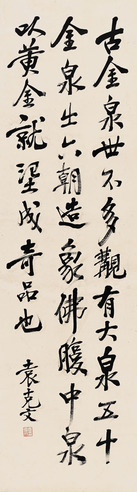 古金泉世不多覯有大泉五十
金泉出六朝造象佛腹中泉
以黃金就成奇品也
袁克文